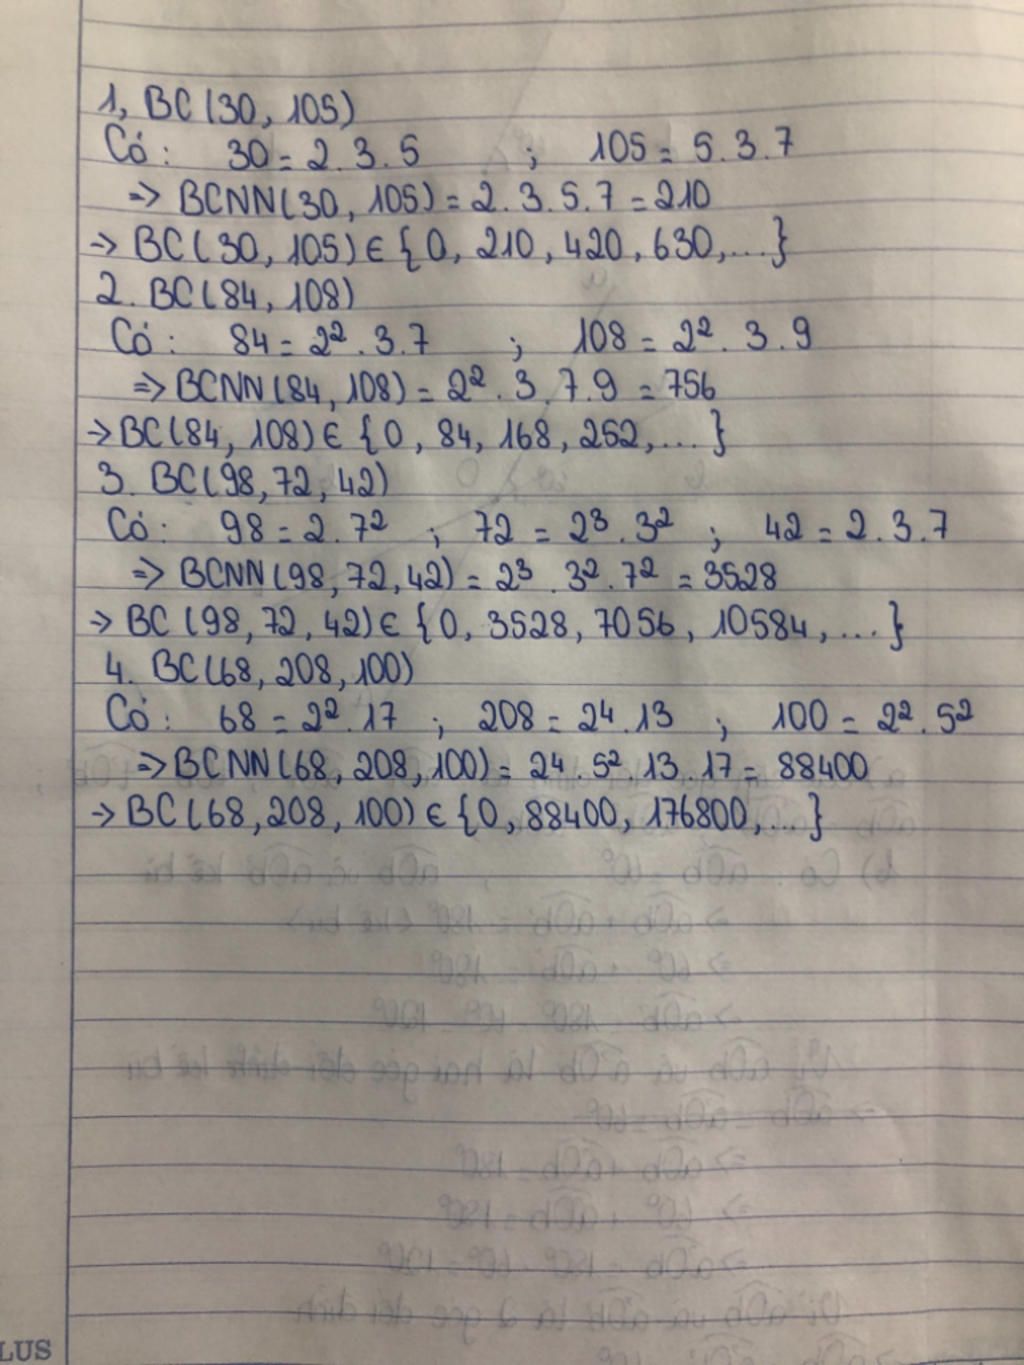 1, BC(30, 105)
Có: 30 = 2.3.5 ; 105 = 5.3.7
=> BCNN(30, 105) = 2.3.5.7 = 210
-> BC(30, 105) ∈ {0, 210, 420, 630,...}
2. BC(84, 108)
Có: 84 = 2².3.7 ; 108 = 2².3.9
=> BCNN(84, 108) = 2².3.7.9 = 756
-> BC(84, 108) ∈ {0, 84, 168, 252,...}
3. BC(98, 72, 42)
Có: 98 = 2.7² ; 72 = 2³.3² ; 42 = 2.3.7
=> BCNN(98, 72, 42) = 2³.3².7² = 3528
-> BC(98, 72, 42) ∈ {0, 3528, 7056, 10584,...}
4. BC(68, 208, 100)
Có: 68 = 2².17 ; 208 = 2⁴.13 ; 100 = 2².5²
=> BCNN(68, 208, 100) = 2⁴.5².13.17 = 88400
-> BC(68, 208, 100) ∈ {0, 88400, 176800,...}
LUS